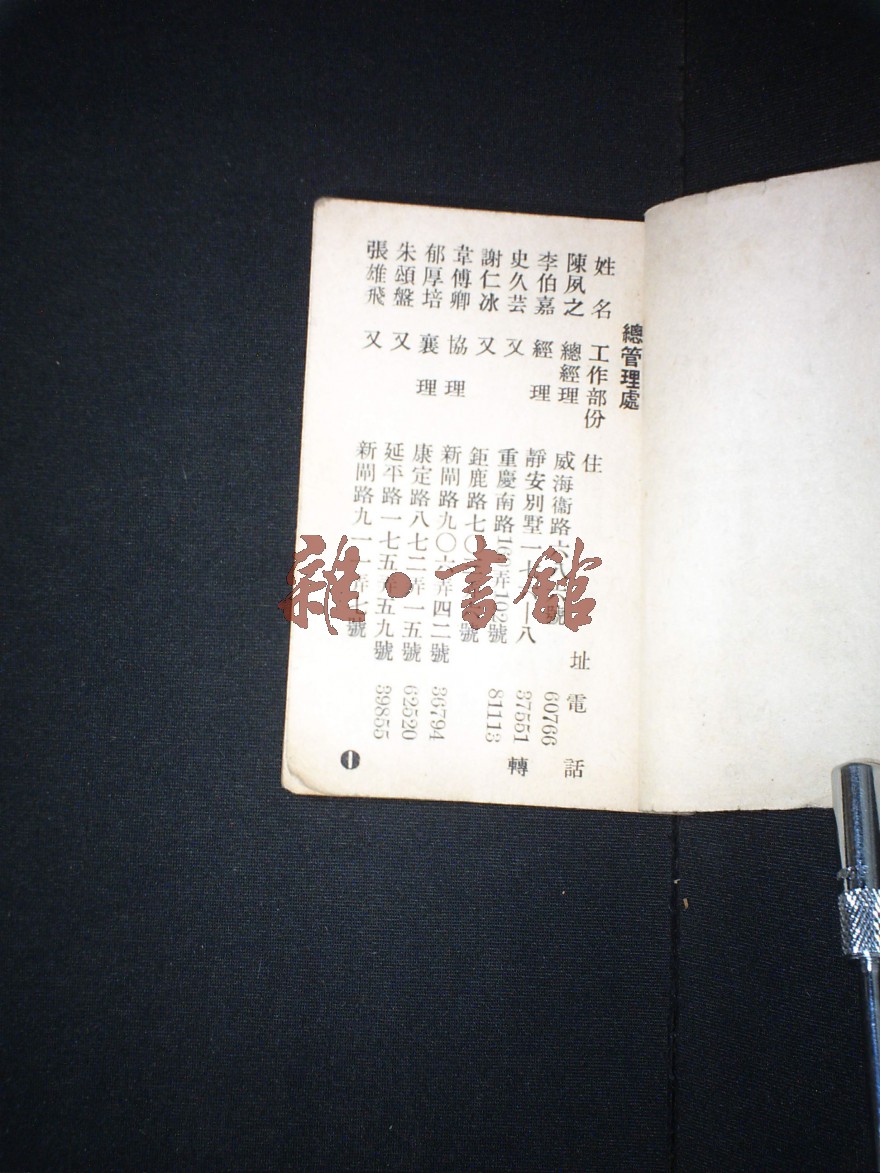 總管理處
姓名 工作部份 住址 電話
陳夙之 總經理 威海衞路六 號 60766
李伯嘉 經理 靜安別墅一七 八 37551 轉
史久芸 又 重慶南路 弄 號 81113
謝仁冰 又 鉅鹿路七〇 號
韋傅卿 協理 新閘路九〇六弄四二號 36794
郁厚培 襄理 康定路八七二弄一五號 62520
朱頌盤 又 延平路一七五弄五九號 39855
張雄飛 又 新閘路九一一弄七號
1
雜·書館